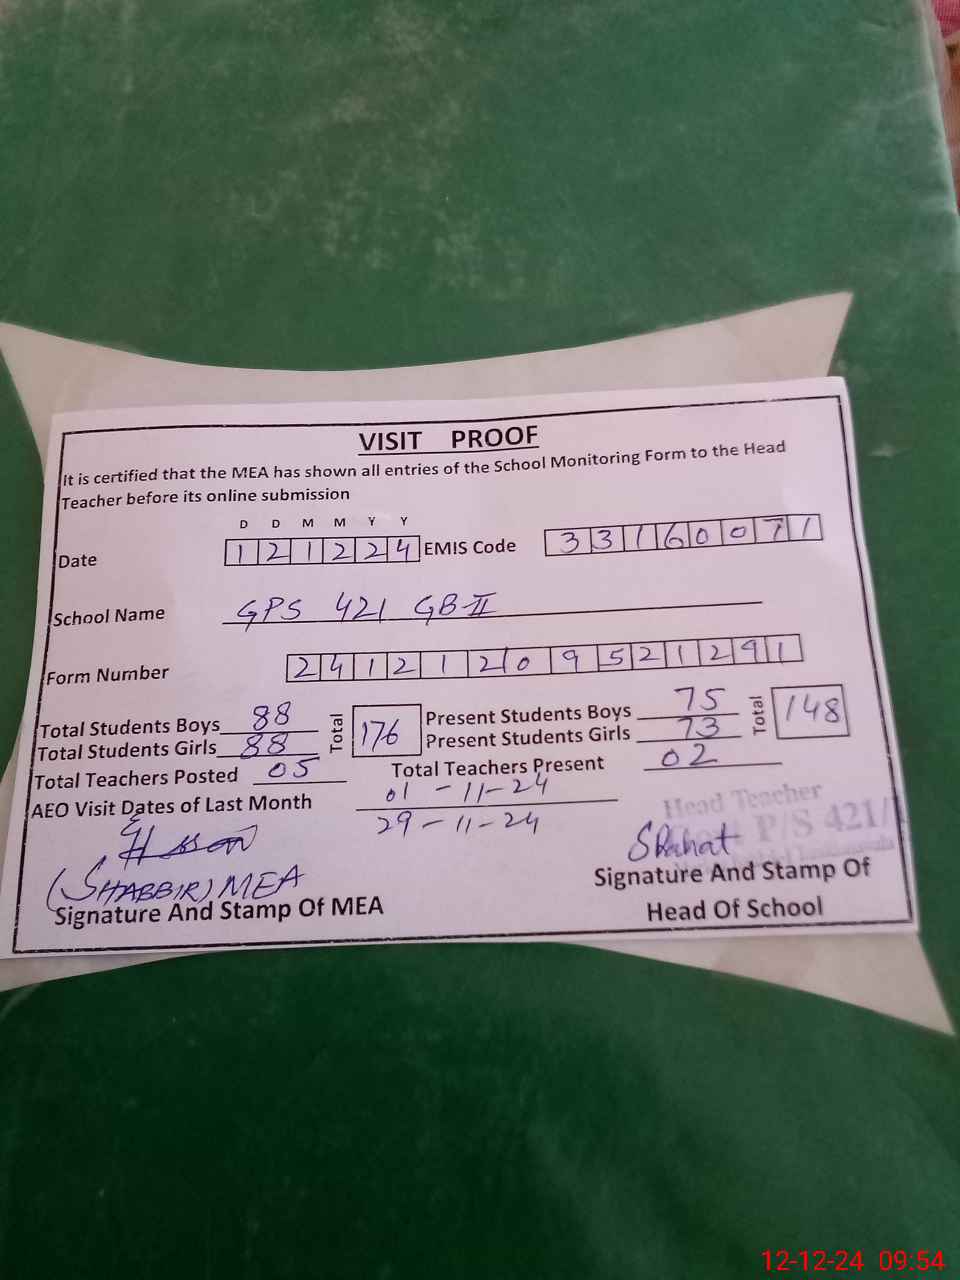 VISIT PROOF
It is certified that the MEA has shown all entries of the School Monitoring Form to the Head
Teacher before its online submission
D D M M Y Y
Date 121224 EMIS Code 33160071
School Name GPS 421 GB-II
Form Number 24121209521291
Total Students Boys 88 Total 176 Present Students Boys 75 Total 148
Total Students Girls 88 Present Students Girls 73
Total Teachers Posted 05 Total Teachers Present 02
AEO Visit Dates of Last Month 01-11-24
29-11-24
Head Teacher
P/S 421/
(SHABBIR) MEA
Signature And Stamp Of MEA
Signature And Stamp Of
Head Of School
12-12-24 09:54